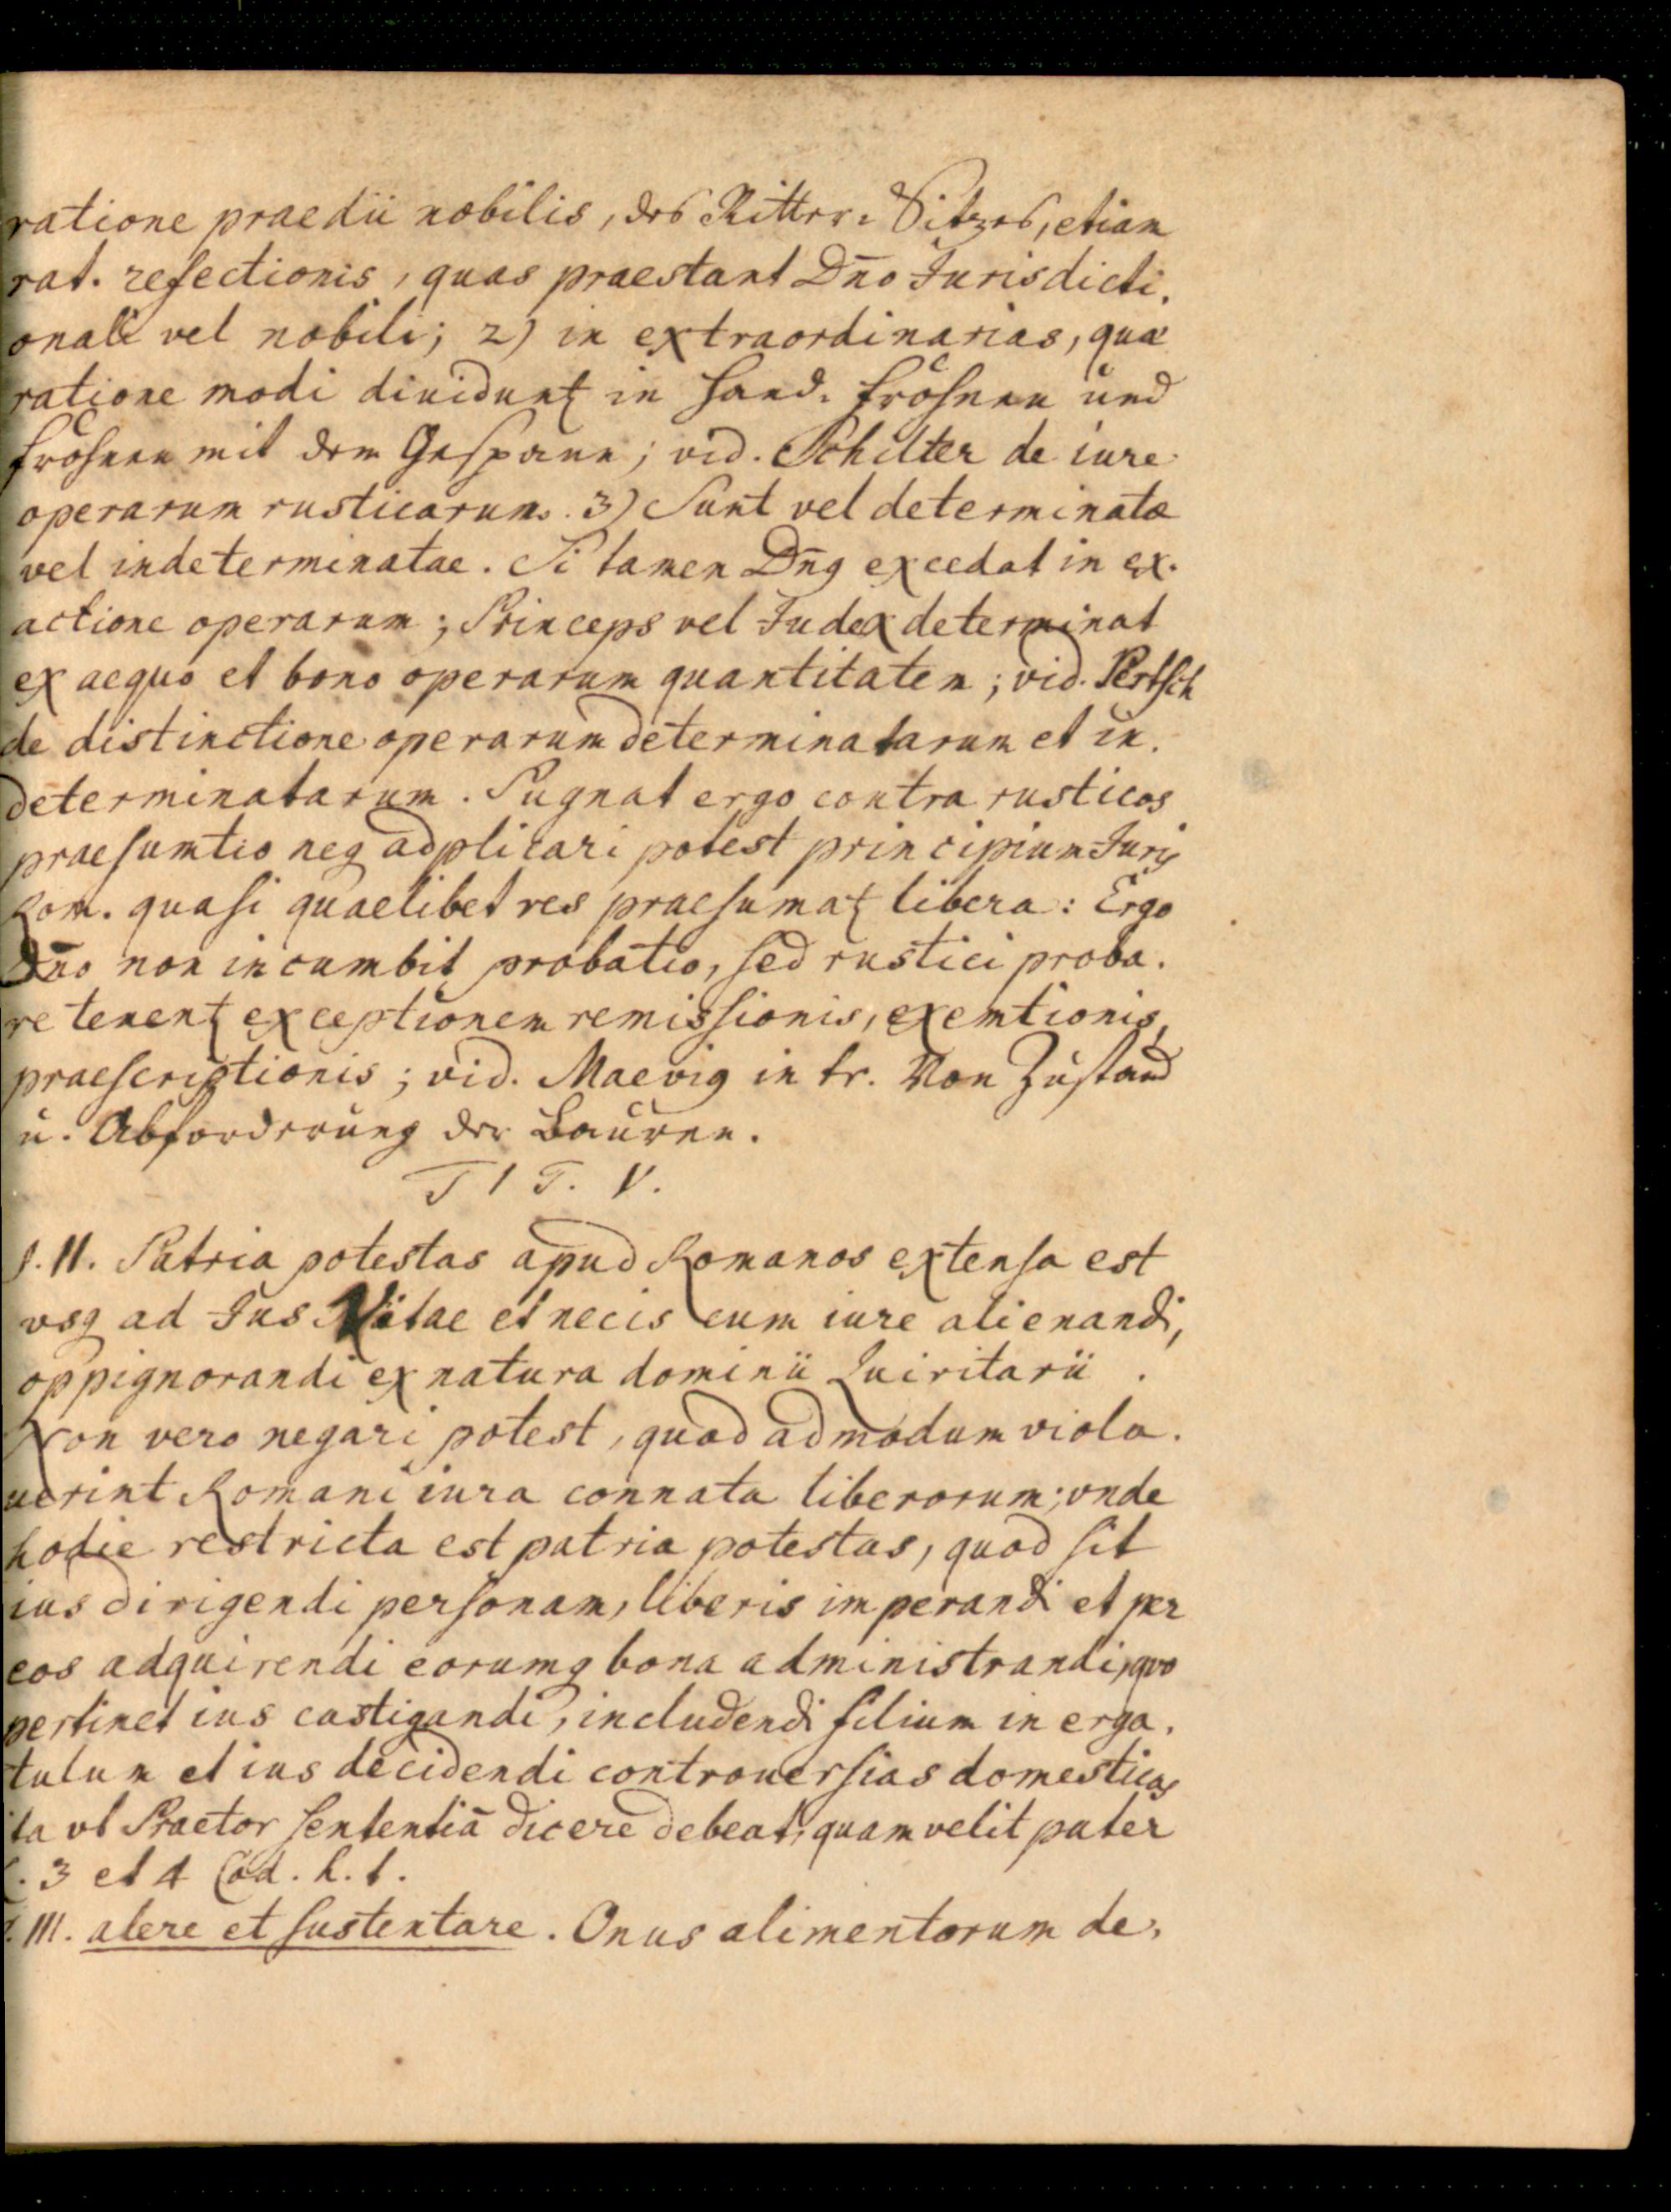 ratione praedii nobilis, des Ritter-Sitzes, etiam
rat. refectionis, quas praestant Dn̄o Jurisdicti-
onali vel nobili; 2) in extraordinarias, quæ
ratione modi diuidunt in Hand-fröhnen und
fröhnen mit dem Gespann; vid. Schilter de iure
operarum rusticarum. 3) Sunt vel determinatæ
vel indeterminatae. Si tamen Dn̄9 excedat in ex-
actione operarum; Princeps vel Judex determinat
ex aequo et bono operarum quantitatem; vid. Pertsch
de distinctione operarum determinatarum et in-
determinatarum. Pugnat ergo contra rusticos
praesumtio neq adplicari potest principium Juris
Rom. quasi quaelibet res praesumat libera: Ergo
Dn̄o non incumbit probatio, sed rustici proba-
re tenent exceptionem remissionis, exemtionis,
praescriptionis; vid. Maevi9 in tr. Von Zustand
u. Abforderung der Bauren.
TIT. V.
§. II. Patria potestas apud Romanos extensa est
vsq ad Jus Vitae et necis cum iure alienandi,
oppignorandi ex natura dominii Quiritarii.
Non vero negari potest, quod admodum viola-
uerint Romani iura connata liberorum; vnde
hodie restricta est patria potestas, quod sit
ius dirigendi personam, liberis imperandi et per
eos adquirendi eorumq bona administrandi, quo
pertinet ius castigandi, includendi filium in erga-
tulum et ius decidendi controuersias domesticas
ita vt Praetor sententiā dicere debeat, quam velit pater
L. 3 et 4 Cod. h. t.
§. III. alere et sustentare. Onus alimentorum de-